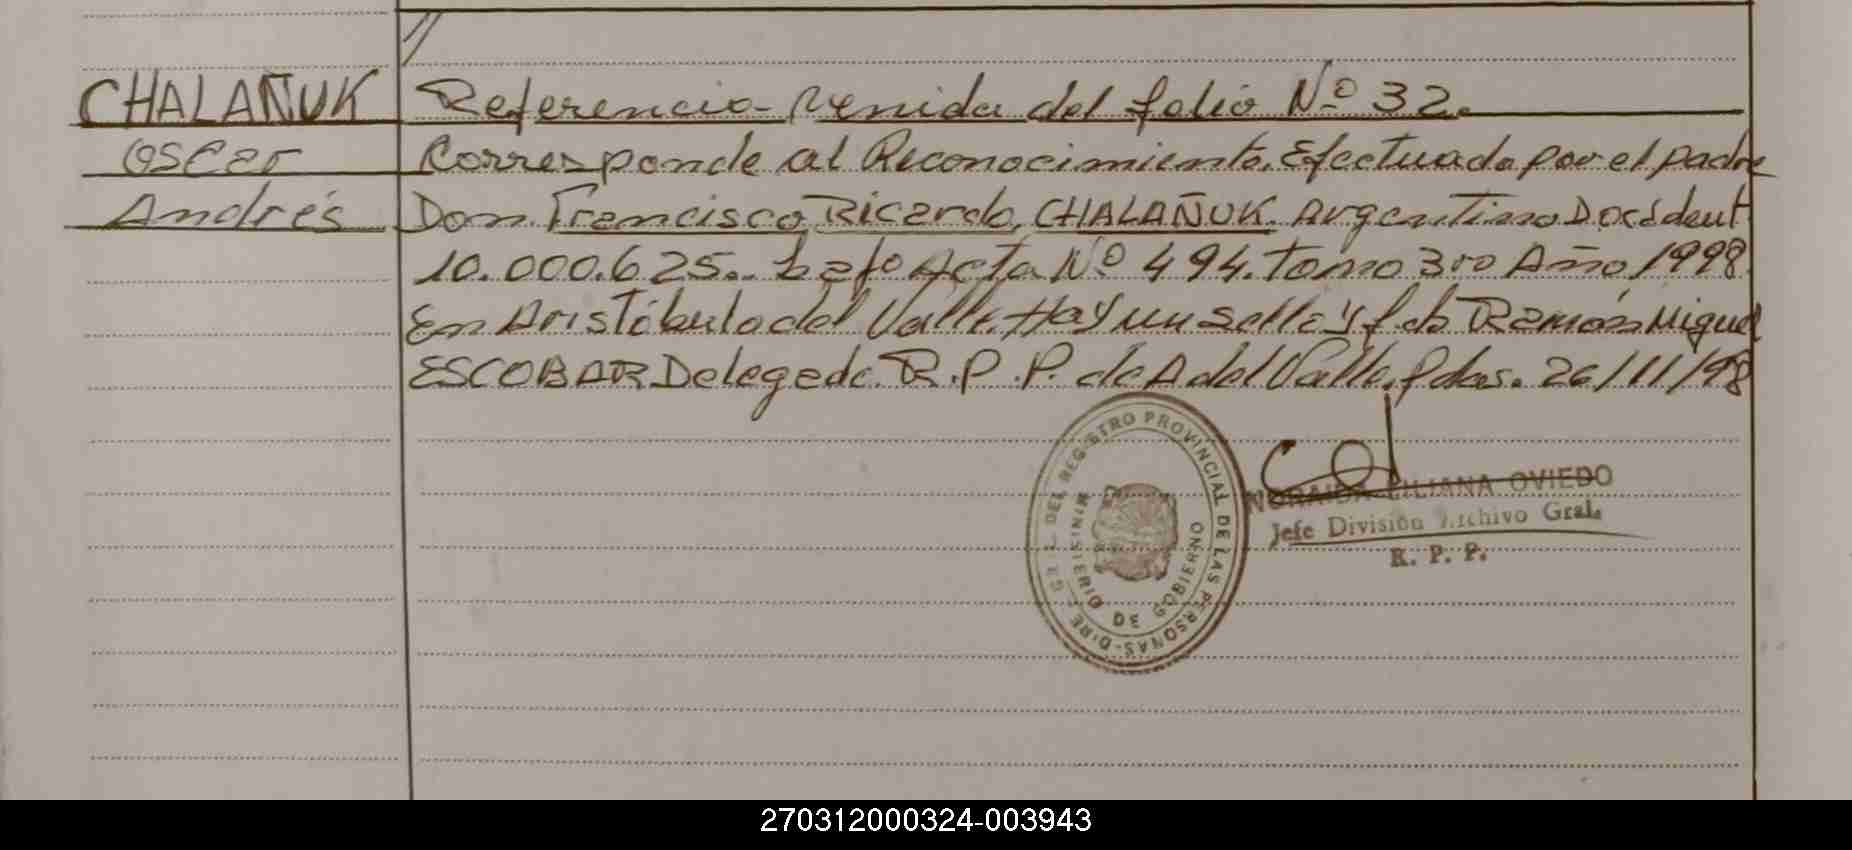 //
CHALAÑUK Referencia Venida del folio Nº 32.
Oscar Corresponde al Reconocimiento. Efectuado por el padre
Andrés Don Francisco Ricardo CHALAÑUK Argentino Doc Ident
10.000.625. bajo Acta Nº 494. Tomo 3ro Año 1998
En Aristóbulo del Valle. Hay un sello y fdo Ramón Miguel
ESCOBAR Delegado. R.P.P. de A del Valle. Pdas. 26/11/98
DIRE GRAL DEL REGISTRO PROVINCIAL DE LAS PERSONAS
MINISTERIO DE GOBIERNO
LILIANA OVIEDO
Jefe División Archivo Gral.
R. P. P.
270312000324-003943